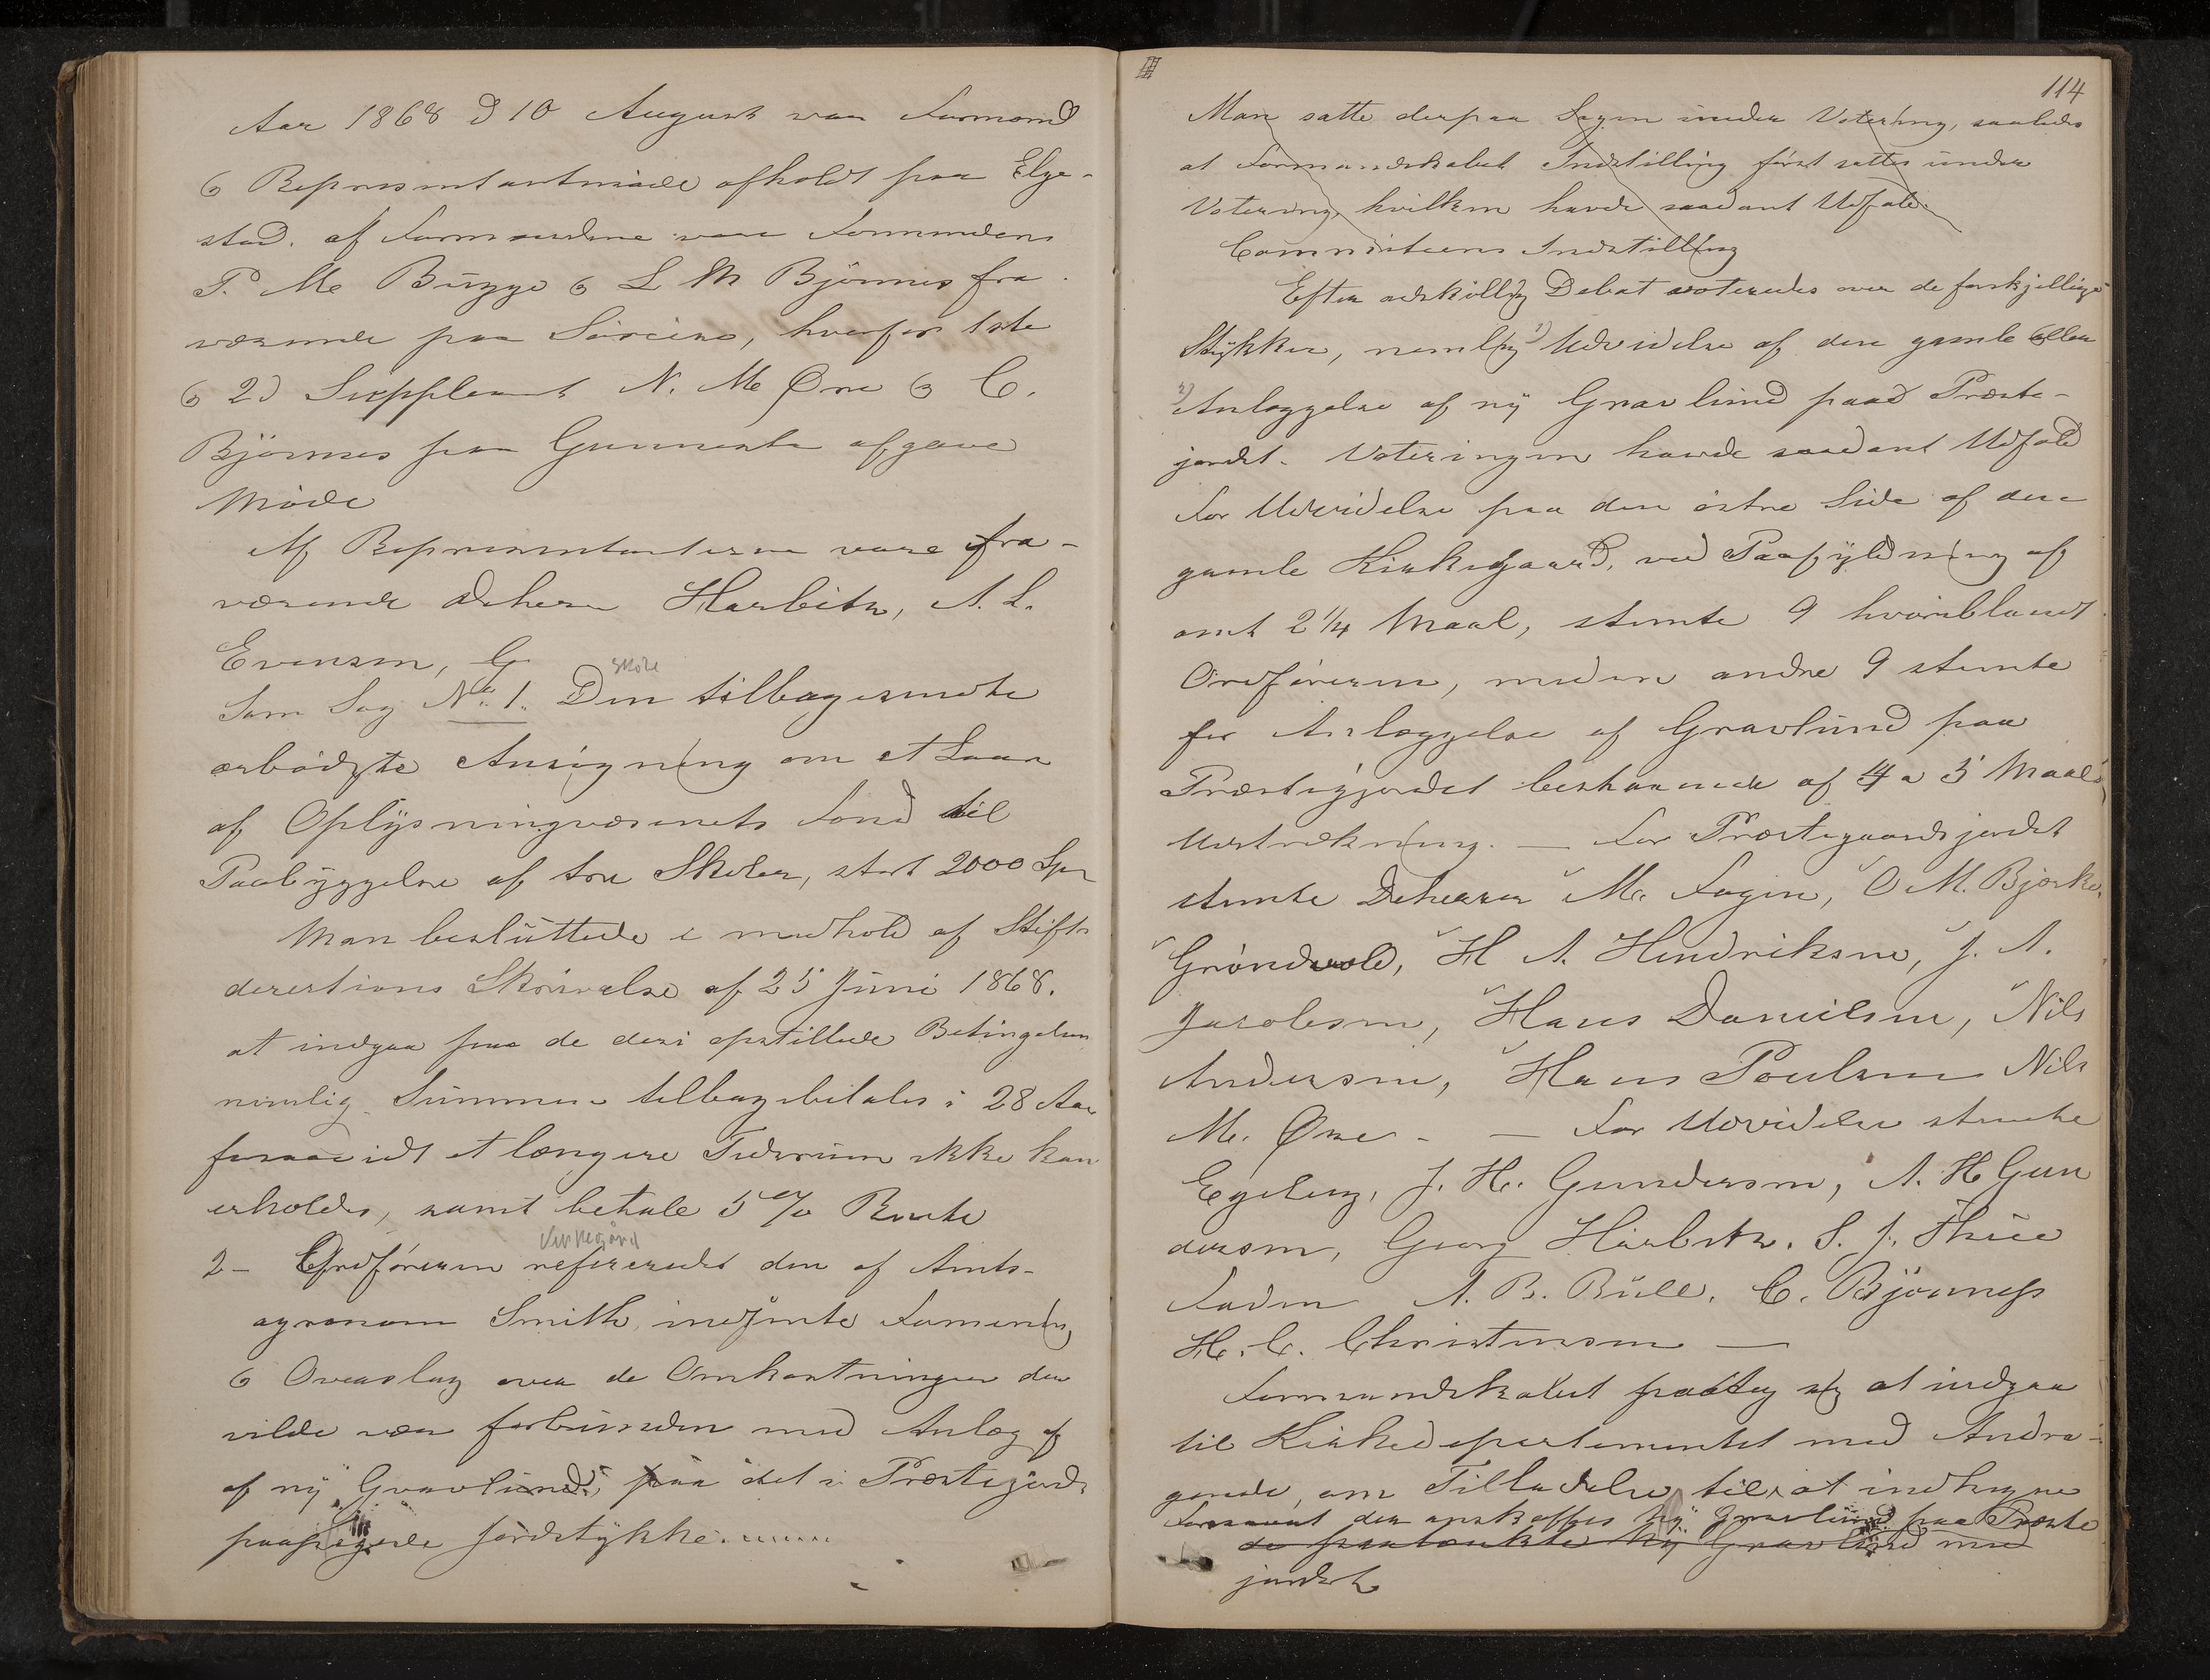 Aar 1868 d 10 August var Formand
& Representantmøde afholdt paa Elge-
stad. af Formændene vare Formanden
P. M. Bugge & L M Bjørnes fra
værende paa Søreise, hvorfor 1ste
& 2d Suppleant N. M. Øre & C.
Bjørnes paa Grunneste afgave
Møde
Af Representanterne vare fra-
værende dherr Harbitz, A. L.
Evensen, G
Skole
Som Sag No. 1. Den tilbagesendte
ærbødigste Ansøgning om et Laan
af Oplysningsvæsenets Fond til
Paabyggelse af tre Skoler, stort 2000 Spd
Man besluttede i medhold af Stifts
derectionens Skrivelse af 25 Juni 1868.
at indgaa paa de deri opstillede Betingelser
nemlig Summen tilbagebetales i 28 Aar
forsaavidt et længere Tidsrum ikke kan
erholdes, samt betale 5 % Rente
Kirkegård
2- Ordføreren refererede den af Amts-
agronom Smith indsendte Formening
& Overslag over de Omkostninger der
vilde være forbunden med Anlæg af
af ny Gravlund, paa det i Præstegjords
paapegede Jordstykke.
114
Man satte derpaa Sagen under Votering, saaledes
at Formandskabet Indstilling først sattes under
Votering, hvilken havde saadant Udfald.
Committeens Indstilling
Efter adskillig Debat voteredes over de forskjellige
Stykker, nemlig 1) Udvidelse af den gamle eller
2) Anlæggelse af ny Gravlund paa Præste-
jordet. Voteringen havde saadant Udfald
For Udvidelse paa den østre Side af den
gamle Kirkegaard, ved Paafyldning af
omt 2 1/4 Maal, stemte 9 hvoriblandt
Ordføreren, medens andre 9 stemte
for Anlæggelse af Gravlund paa
Præstegjordet bestaaende af 4 a 5 Maals
Udstrækning. — For Præstegaardsjordet
stemte Deherrer M. Fogen, O M. Bjerke,
Grøndvold, H A. Hendriksen, J. A.
Jacobsen, Hans Danielsen, Nils
Andersen, Hans Poulsen Nils
M. Øre - — For Udvidelse stemte
Egeberg, J. H. Gundersen, A. H Gun
dersen, Georg Harbitz. S. J. Thue
Faden A. B. Bull. C. Bjørness
H. C. Christensen —
Formandskabet paatog sig at indgaa
til Kirkedepartementet med Andra-
gende, om Tilladelse til at indhegne
der anskaffes ny Gravlund paa Præste
de paatænkte ny Gravlund med
jordet